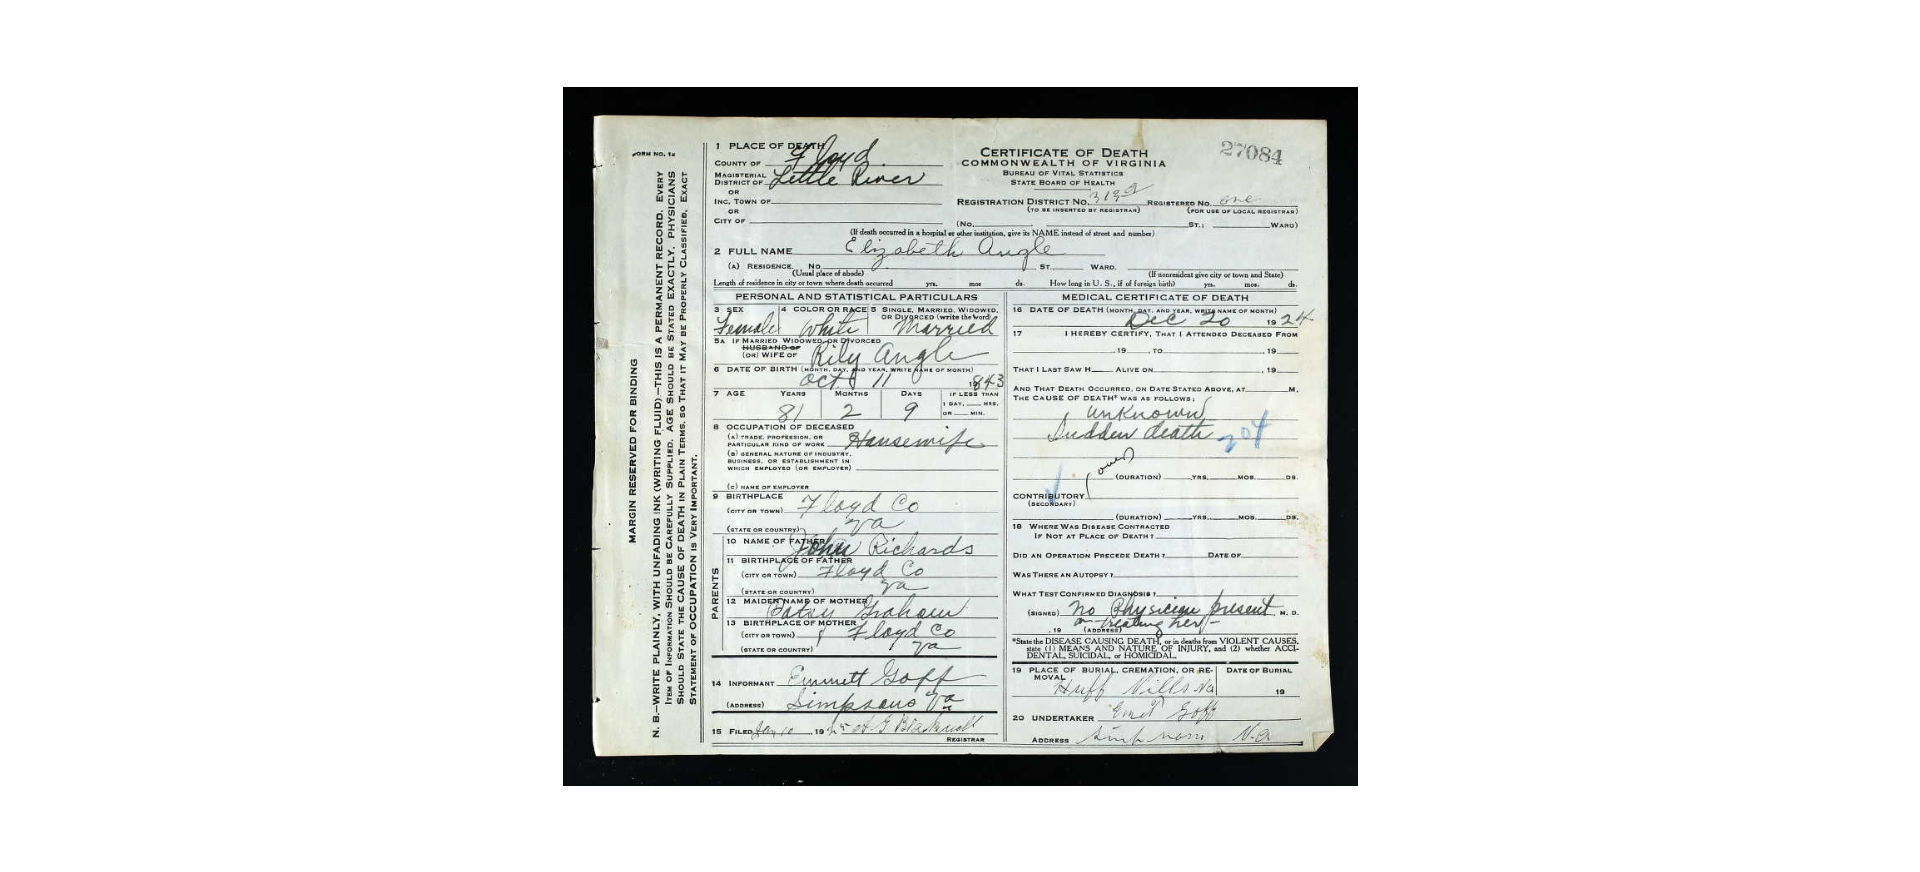 FORM NO. 12
MARGIN RESERVED FOR BINDING
N. B.—WRITE PLAINLY, WITH UNFADING INK (WRITING FLUID).—THIS IS A PERMANENT RECORD. EVERY
ITEM OF INFORMATION SHOULD BE CAREFULLY SUPPLIED. AGE SHOULD BE STATED EXACTLY. PHYSICIANS
SHOULD STATE THE CAUSE OF DEATH IN PLAIN TERMS, SO THAT IT MAY BE PROPERLY CLASSIFIED. EXACT
STATEMENT OF OCCUPATION IS VERY IMPORTANT.
1 PLACE OF DEATH
COUNTY OF Floyd
MAGISTERIAL
DISTRICT OF Little River
OR
INC. TOWN OF
OR
CITY OF
CERTIFICATE OF DEATH
COMMONWEALTH OF VIRGINIA
BUREAU OF VITAL STATISTICS
STATE BOARD OF HEALTH
27084
REGISTRATION DISTRICT NO. REGISTERED NO. one
(TO BE INSERTED BY REGISTRAR) (FOR USE OF LOCAL REGISTRAR)
(NO. ST.; WARD)
(If death occurred in a hospital or other institution, give its NAME instead of street and number)
2 FULL NAME Elizabeth Angle
(A) RESIDENCE. NO. ST. WARD.
(Usual place of abode) (If nonresident give city or town and State)
Length of residence in city or town where death occurred yrs. mos ds. How long in U. S., if of foreign birth) yrs. mos. ds.
PERSONAL AND STATISTICAL PARTICULARS
3 SEX 4 COLOR OR RACE 5 SINGLE, MARRIED, WIDOWED,
OR DIVORCED (write the word)
Female White Married
5A IF MARRIED WIDOWED OR DIVORCED
HUSBAND OF
(OR) WIFE OF Rily Angle
6 DATE OF BIRTH (MONTH, DAY, AND YEAR, WRITE NAME OF MONTH)
Oct 11 1843
7 AGE YEARS MONTHS DAYS IF LESS THAN
1 DAY, HRS.
OR MIN.
81 2 9
8 OCCUPATION OF DECEASED
(A) TRADE, PROFESSION, OR
PARTICULAR KIND OF WORK Housewife
(B) GENERAL NATURE OF INDUSTRY,
BUSINESS, OR ESTABLISHMENT IN
WHICH EMPLOYED (OR EMPLOYER)
(C) NAME OF EMPLOYER
9 BIRTHPLACE
(CITY OR TOWN) Floyd Co
(STATE OR COUNTRY) Va
PARENTS
10 NAME OF FATHER John Richards
11 BIRTHPLACE OF FATHER
(CITY OR TOWN) Floyd Co
(STATE OR COUNTRY) Va
12 MAIDEN NAME OF MOTHER
Patsy Graham
13 BIRTHPLACE OF MOTHER
(CITY OR TOWN) Floyd Co
(STATE OR COUNTRY) Va
14 INFORMANT Emmett Goff
(ADDRESS) Simpsons Va
15 FILED Jan 10 1925
REGISTRAR
MEDICAL CERTIFICATE OF DEATH
16 DATE OF DEATH (MONTH, DAY, AND YEAR, WRITE NAME OF MONTH)
Dec 20 1924
17 I HEREBY CERTIFY, THAT I ATTENDED DECEASED FROM
, 19 , TO , 19
THAT I LAST SAW H ALIVE ON , 19
AND THAT DEATH OCCURRED, ON DATE STATED ABOVE, AT M.
THE CAUSE OF DEATH* WAS AS FOLLOWS:
Unknown
Sudden death 204
(over)
(DURATION) YRS. MOS. DS.
CONTRIBUTORY
(SECONDARY)
(DURATION) YRS. MOS. DS.
18 WHERE WAS DISEASE CONTRACTED
IF NOT AT PLACE OF DEATH?
DID AN OPERATION PRECEDE DEATH? DATE OF
WAS THERE AN AUTOPSY?
WHAT TEST CONFIRMED DIAGNOSIS?
(SIGNED) No Physician present, M. D.
or treating her
, 19 (ADDRESS)
*State the DISEASE CAUSING DEATH, or in deaths from VIOLENT CAUSES,
state (1) MEANS AND NATURE OF INJURY, and (2) whether ACCI-
DENTAL, SUICIDAL, or HOMICIDAL.
19 PLACE OF BURIAL, CREMATION, OR RE- DATE OF BURIAL
MOVAL
Huff Va 19
20 UNDERTAKER Emit Goff
ADDRESS Simpsons Va